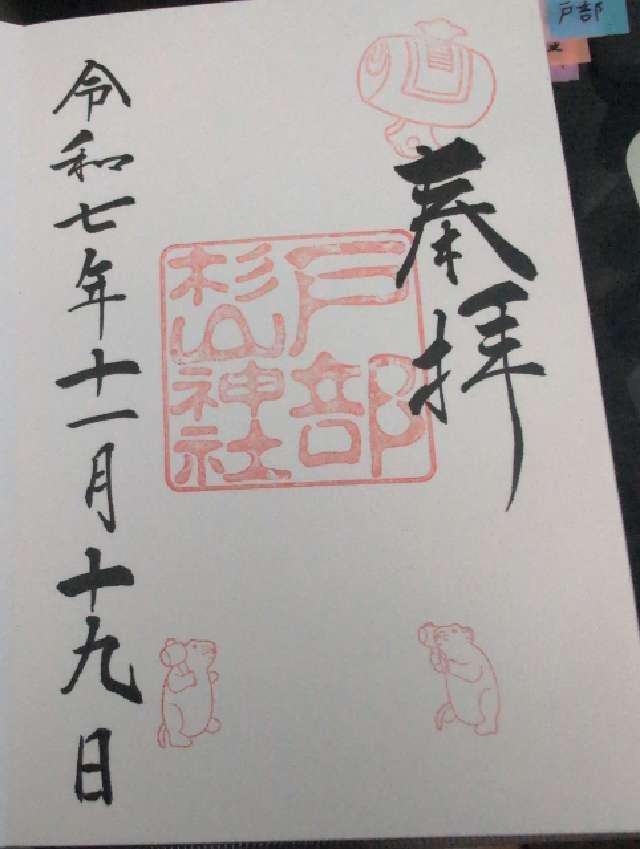 奉拝
戸部
杉山神社
令和七年十一月十九日
戸部